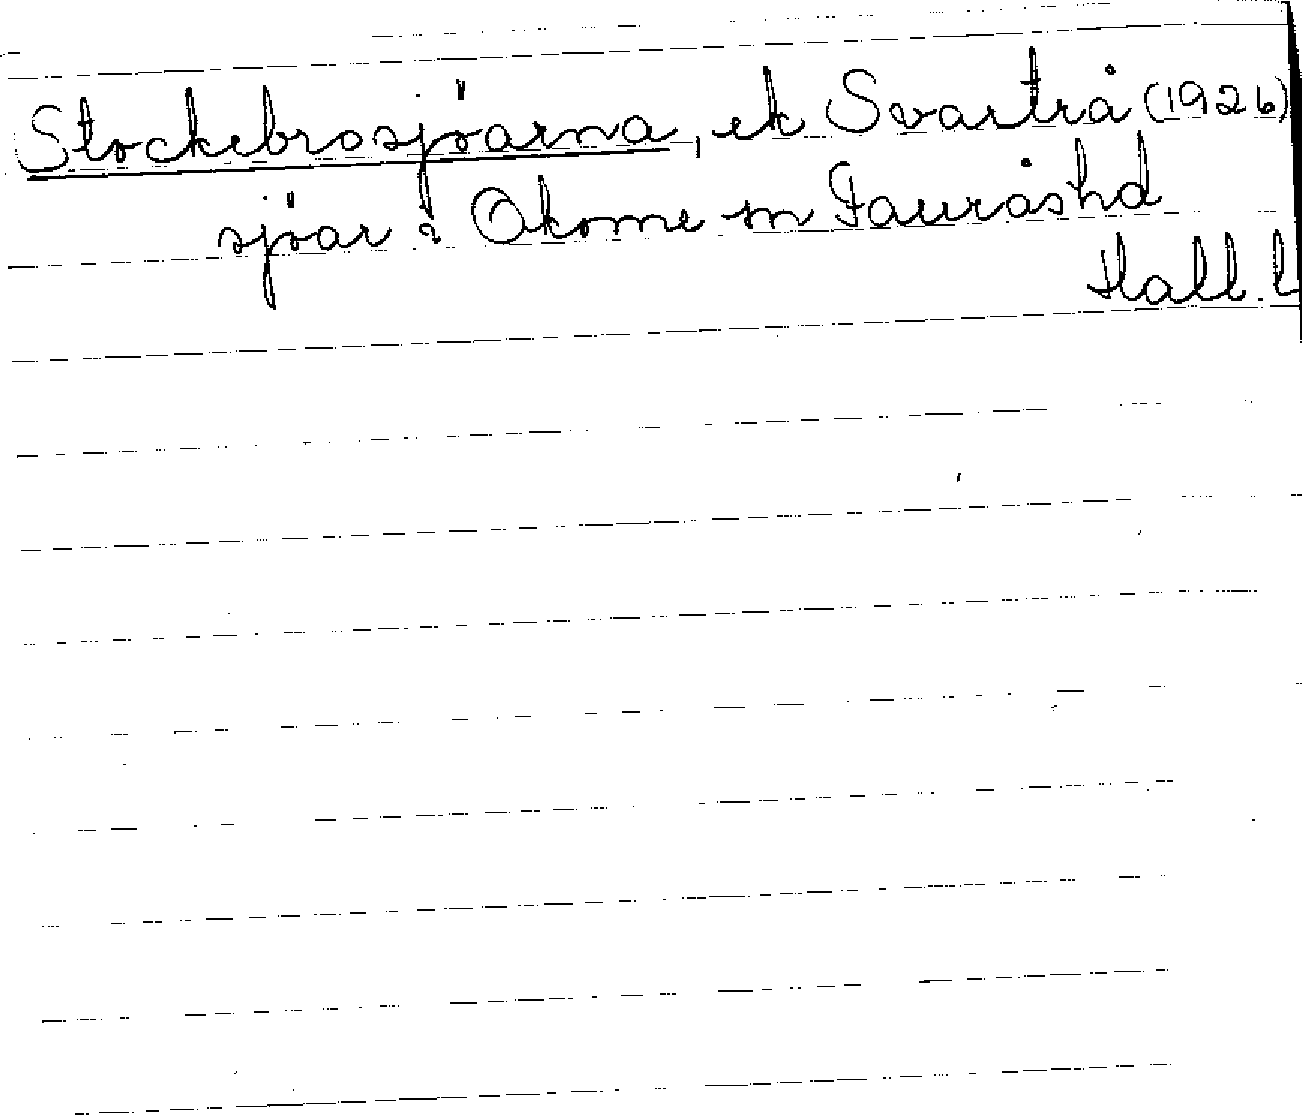 Stockebrosjöarna, ek Svartrå (1926)
sjöar i Okome sn Fauråshd
Hall. l